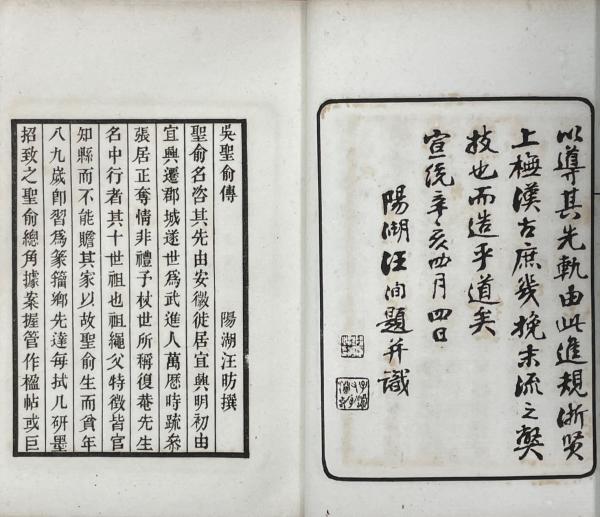 以導其先軌由此進規浙賢
上橅漢古庶幾挽末流之獘
技也而造乎道矣
宣統辛亥四月四日
陽湖汪洵題并識
吳聖俞傳 陽湖汪昉撰
聖俞名咨其先由安徽徙居宜興明初由
宜興遷郡城遂世為武進人萬厤時疏參
張居正奪情非禮予杖世所稱復菴先生
名中行者其十世祖也祖繩父特徵皆官
知縣而不能贍其家以故聖俞生而貧年
八九歲卽習為篆籀鄉先達每拭几硏墨
招致之聖俞總角據案握管作楹帖或巨